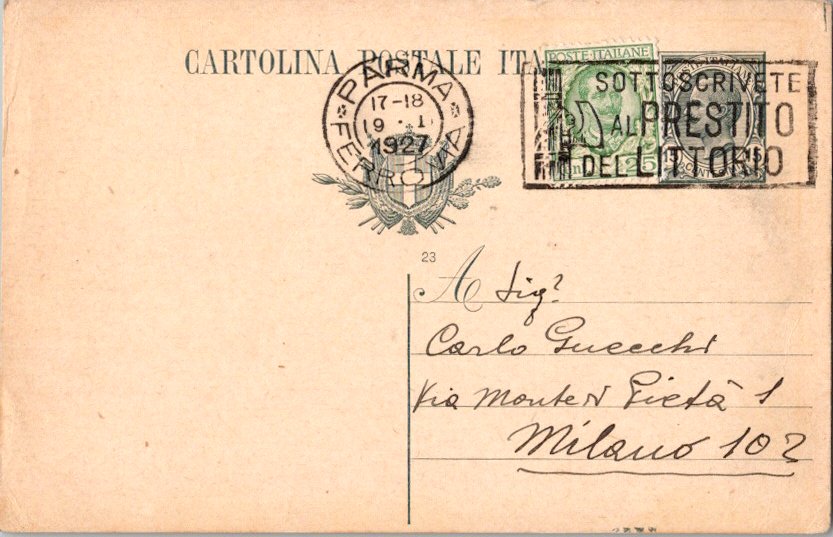 CARTOLINA POSTALE ITA
POSTE ITALIANE
25
15 15
PARMA
17-18
19 · I
1927
FERROVIA
SOTTOSCRIVETE
AL PRESTITO
DEL LITTORIO
23
A Sigr
Carlo Guecchi
Via Monte di Pietà 1
Milano 102